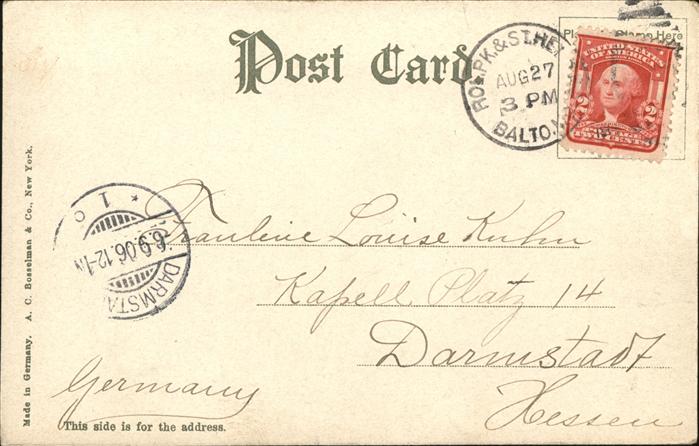 Post Card
Place Stamp Here
ROL.PK.& ST.HE
AUG 27
3 PM
BALTO.M
UNITED STATES
OF AMERICA
2 2
TWO CENTS
Made in Germany. A. C. Bosselman & Co., New York.
* 1
6.9.06.12-1N
DARMSTA
Fräulein Louise Kuhn
Kapell Platz 14
Darmstadt
Hessen
Germany
This side is for the address.